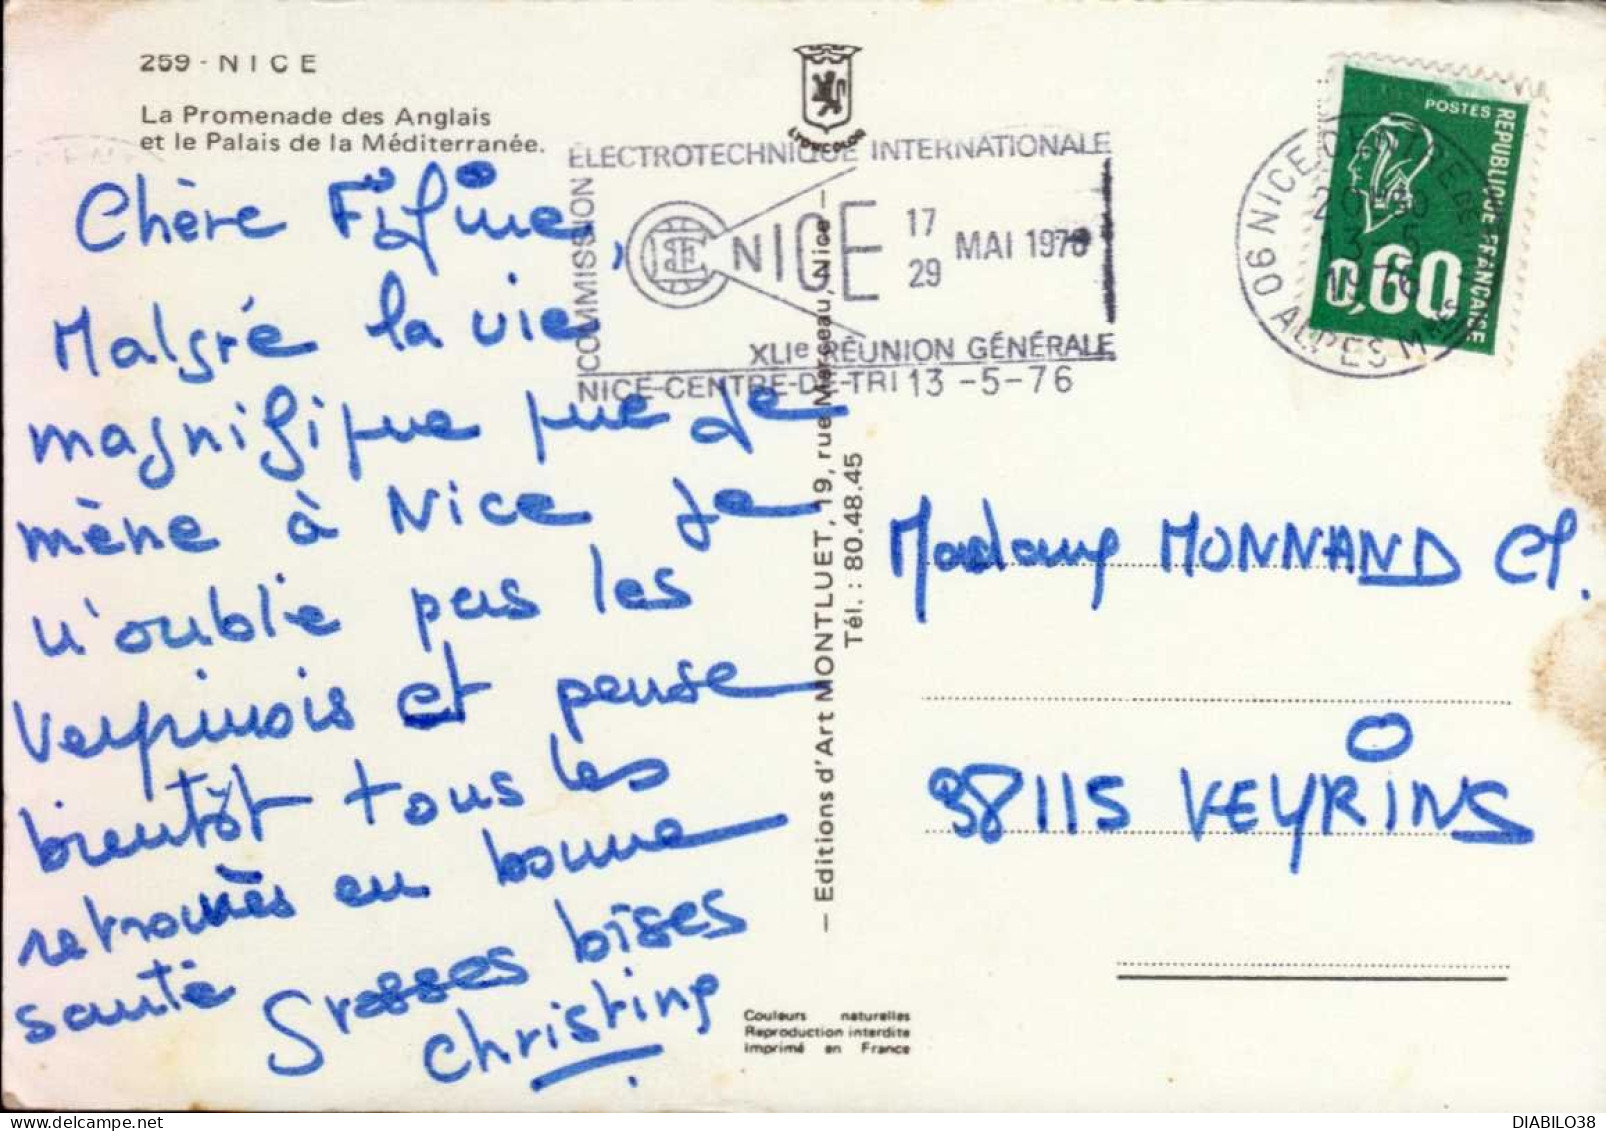 259 - NICE
La Promenade des Anglais
et le Palais de la Méditerranée.
LYONCOLOR
COMMISSION
ÉLECTROTECHNIQUE INTERNATIONALE
NICE
17
29
MAI 1976
XLIe RÉUNION GÉNÉRALE
NICE-CENTRE-DE-TRI 13 -5-76
06 NICE CENTRE DE TRI
13-5
1976
ALPES MMES
POSTES
RÉPUBLIQUE FRANÇAISE
0,60
Chère Fifine,
Malgré la vie
magnifique que je
mène à Nice je
n'oublie pas les
Veyrinois et pense
bientôt tous les
retrouver en bonne
santé
Grosses bises
Christine
Editions d'Art MONTLUET, 19, rue Marceau, Nice –
Tél. : 80.48.45
Madame MONNAND Cl.
38115 VEYRINS
Couleurs naturelles
Reproduction interdite
Imprimé en France
DIABILO38